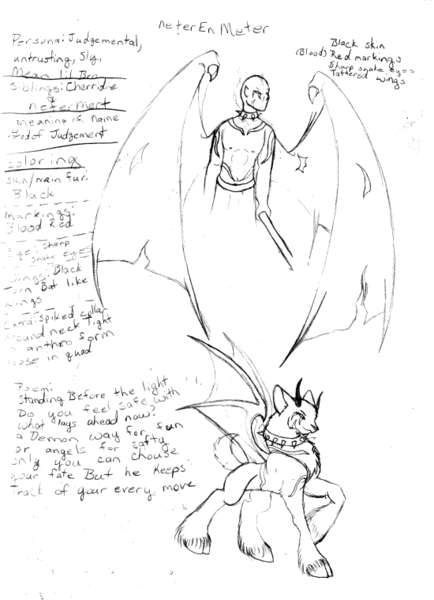 NeterEn Meter
Persona: Judgemental,
untrusting, Sly,
Mean lil Bro
Siblings: Cherridine
&
Netermert
meaning of name
God of Judgement
Coloring
Skin/main fur:
Black
markings:
Blood Red
Eye: Sharp
Snake eyes
wings: Black
torn But like
wings
Extra: spiked collar
around neck tight
in anthro form
loose in quad
Poem:
Standing Before the light
Do you feel safe with
what lays ahead now?
a Demon way for fun
or angels for safty
only you can chouse
your fate But he keeps
Track of your every move
Black skin
(Blood) Red markings
Sharp snake eyes
Tattered wings